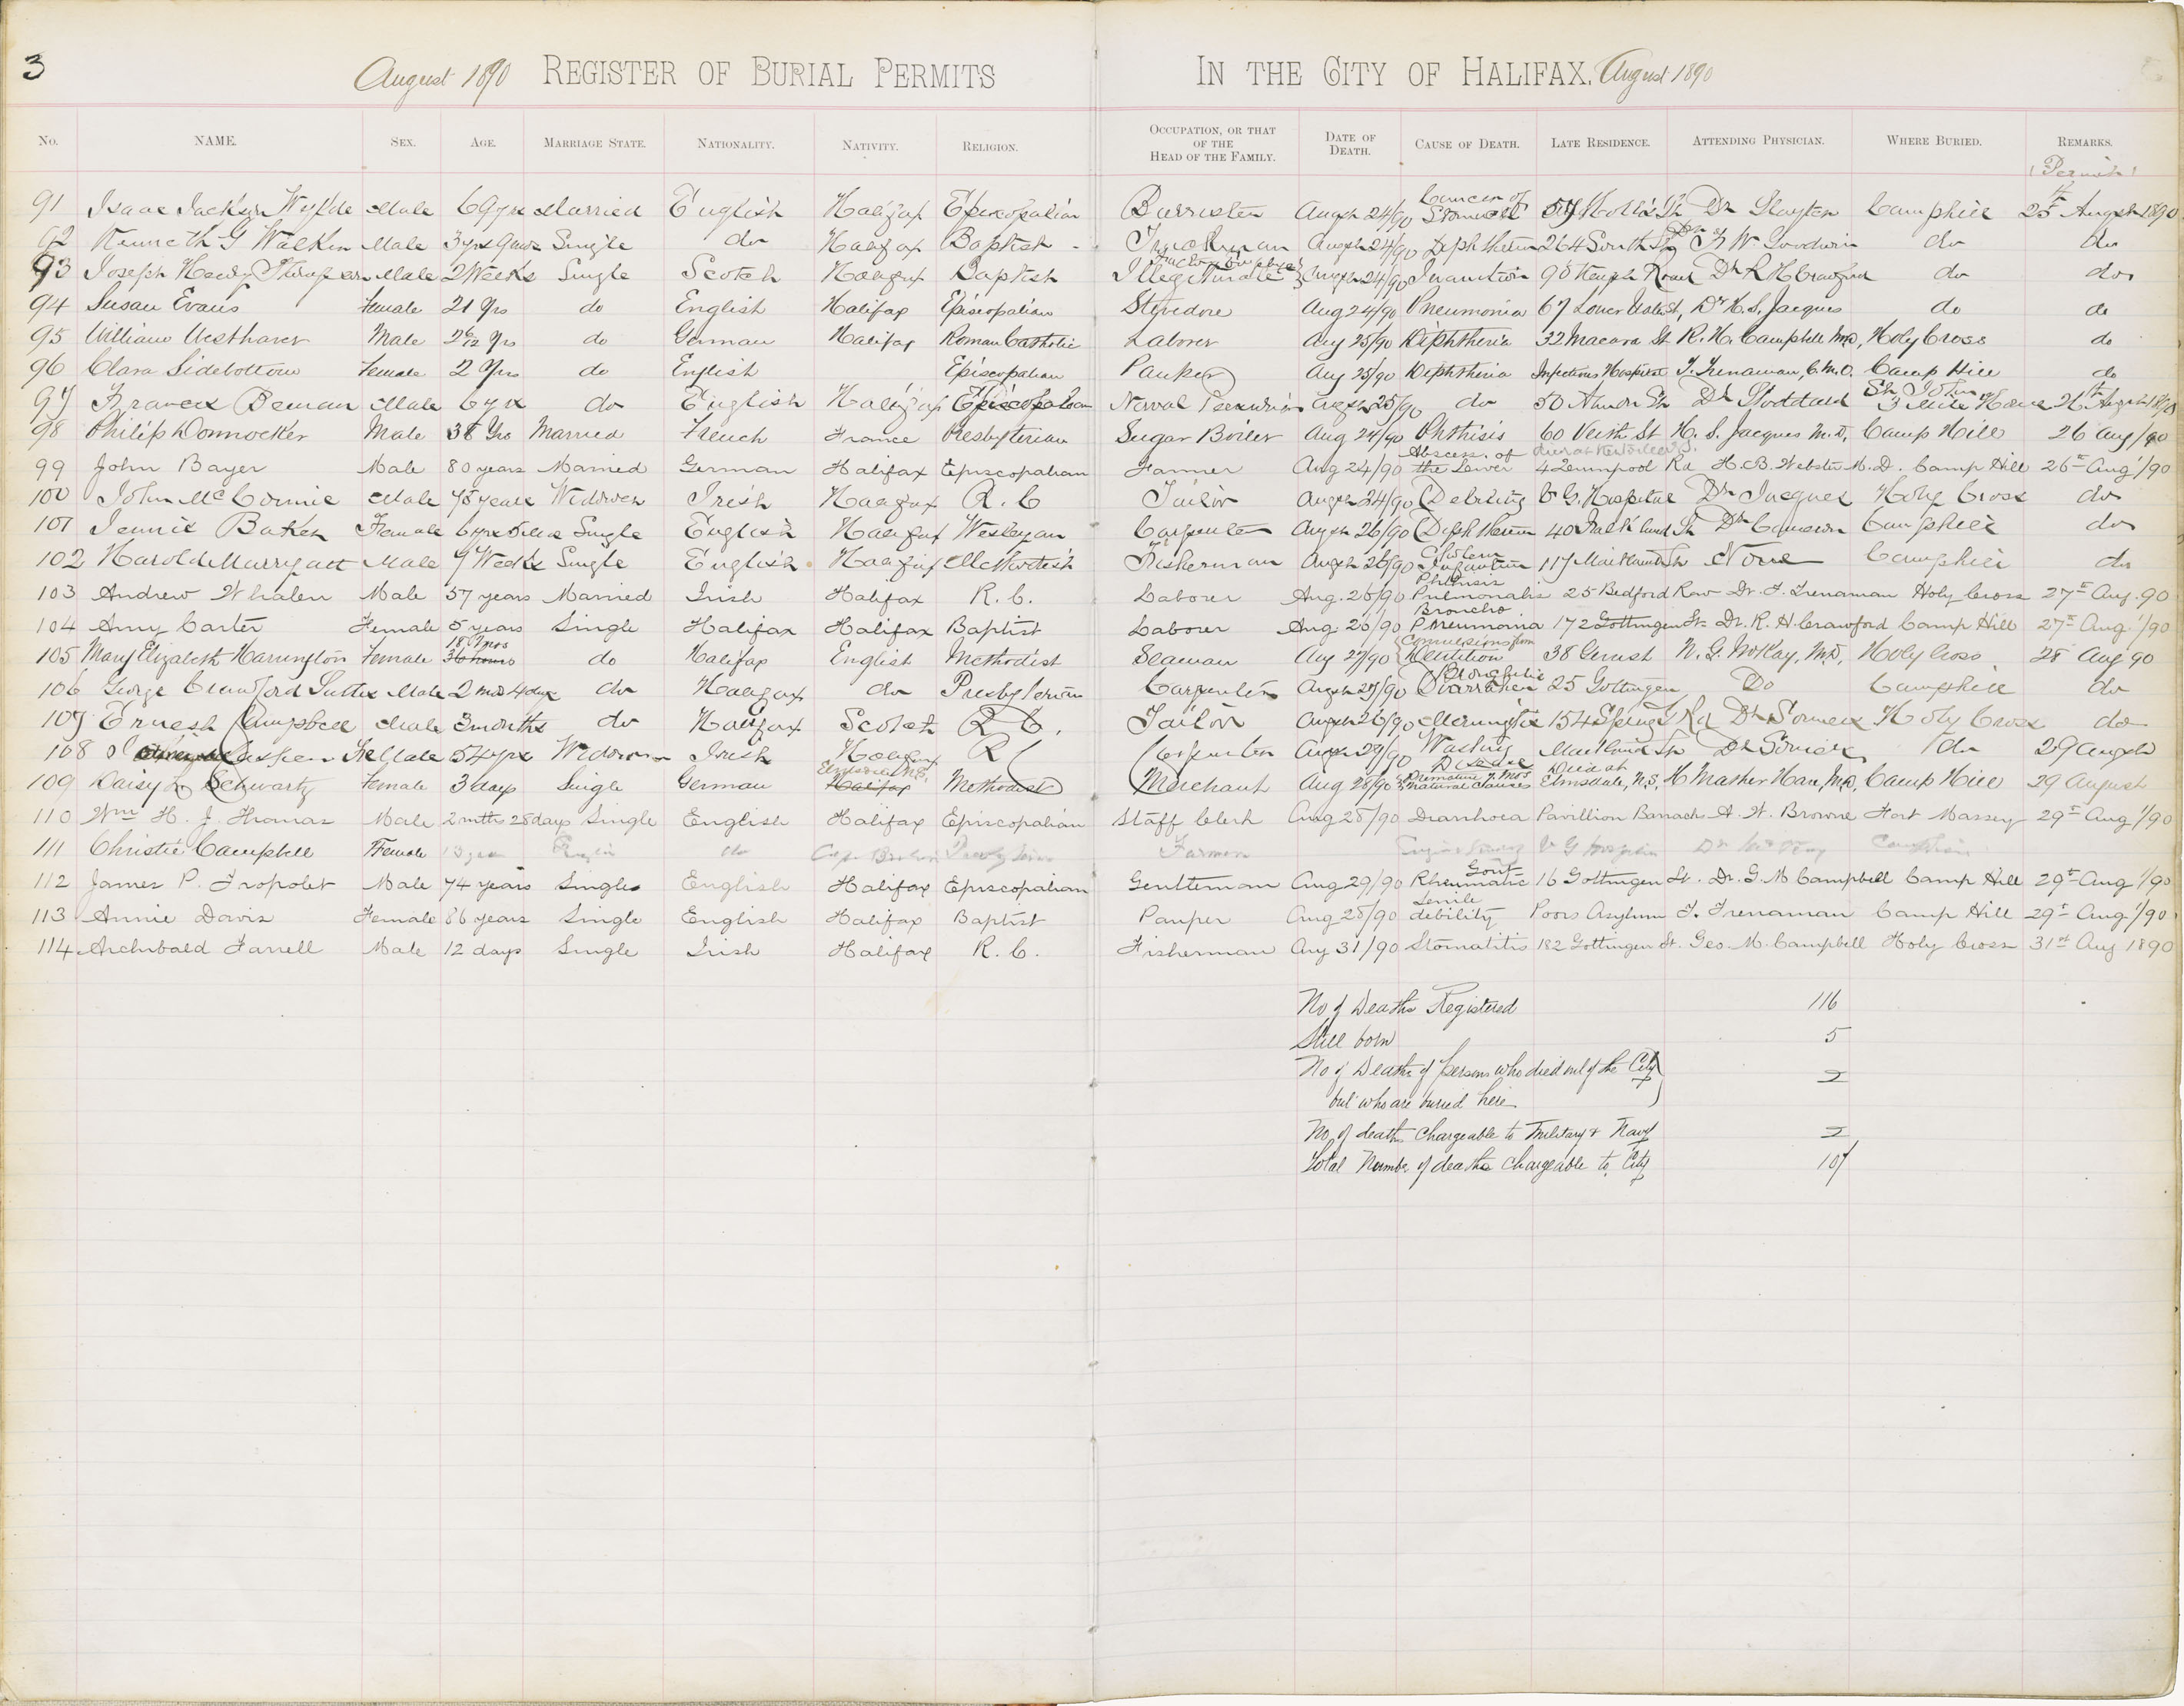 3
August 1890 REGISTER OF BURIAL PERMITS IN THE CITY OF HALIFAX. August 1890
No. NAME. SEX. AGE. MARRIAGE STATE. NATIONALITY. NATIVITY. RELIGION. OCCUPATION, OR THAT OF THE HEAD OF THE FAMILY. DATE OF DEATH. CAUSE OF DEATH. LATE RESIDENCE. ATTENDING PHYSICIAN. WHERE BURIED. REMARKS.
(Permit)
91 Isaac Jackson Wylde Male 69 yrs Married English Halifax Episcopalian Barrister August 24/90 Cancer of Stomach Hollis St Dr Slayter Camphill 25th August 1890
92 Kenneth G Walker Male 3 yrs 9 mos Single do Halifax Baptist Truckman August 24/90 Diphtheria 264 South St Dr F W Goodwin do do
93 Joseph Male 2 Weeks Single Scotch Halifax Baptist Illegitimate August 24/90 Inanition 90 Kempt Road Dr R H Crawford do do
94 Susan Evans Female 21 Yrs do English Halifax Episcopalian Stevedore Aug 24/90 Pneumonia 67 Lower Water St, Dr H. S. Jacques do do
95 William Westhaver Male 2 6/12 Yrs do German Halifax Roman Catholic Laborer Aug 25/90 Diphtheria 32 Macara St R. H. Campbell MD, Holy Cross do
96 Clara Sidebottom Female 2 Yrs do English Episcopalian Pauper Aug 25/90 Diphtheria Infectious Hospital T. Trenaman, C.M.O. Camp Hill do
97 Francis Beman Male 6 yrs do English Halifax Episcopalian Naval Pensioner August 25/90 do 50 Almon St Dr Stoddard St John 3 Mile House 26th August 1890
98 Philip Donnocker Male 38 Yrs Married French France Presbyterian Sugar Boiler Aug 24/90 Phthisis 60 Veith St H. S. Jacques M.D, Camp Hill 26 Aug/90
99 John Bayer Male 80 years Married German Halifax Episcopalian Farmer Aug 24/90 Abscess of the Liver Rd H. B. Webster M.D. Camp Hill 26th Aug '/90
100 John McCormic Male 78 years Widower Irish Halifax R. C Tailor August 24/90 Debility V G. Hospital Dr Jacques Holy Cross do
101 Jennie Baker Female 6 yrs Single English Halifax Wesleyan Carpenter August 26/90 Diphtheria 40 Falkland St Dr Cameron Camphill do
102 Harold Marryatt Male 7 Weeks Single English Halifax Methodist Fisherman August 26/90 Cholera Infantum 117 Maitland St None Camphill do
103 Andrew Whalen Male 57 years Married Irish Halifax R. C. Laborer Aug. 26/90 Phthisis Pulmonalis 25 Bedford Row Dr. T. Trenaman Holy Cross 27th Aug. 90
104 Amy Carter Female 5 years Single Halifax Halifax Baptist Laborer Aug. 26/90 Broncho Pneumonia 172 Gottingen St. Dr. R. H. Crawford Camp Hill 27th Aug. '/90
105 Mary Elizabeth Harrington Female 18 mos 36 hours do Halifax English Methodist Seaman Aug 27/90 Convulsions from Dentition 38 Gerrish N. G. McKay, MD, Holy Cross 28 Aug 90
106 George Crawford Male 2 mos 4 dys do Halifax do Presbyterian Carpenter August 27/90 Bronchitis Diarrhoea 25 Gottingen Do Camphill do
107 Ernest Campbell Male 3 months do Halifax Scotch R C. Tailor August 26/90 Meningitis 154 Spring G Rd Dr Somers Holy Cross do
108 FeMale 54 yrs Widow Irish Halifax R C Carpenter August 28/90 Wasting Disease Maitland St Dr Somers do 29 August
109 Daisy L. Schwartz Female 3 days Single German Elmsdale N.S. Halifax Methodist Merchant Aug 28/90 Premature 7 Mos natural causes Died at Elmsdale, N.S, H Mather Hare, MD, Camp Hill 29 August
110 Wm H. J. Thomas Male 2 mths 28 days Single English Halifax Episcopalian Staff Clerk Aug 28/90 Diarrhoea Pavillion Barracks A. W. Browne Fort Massey 29th Aug '/90
111 Christie Campbell Female do Cape Breton Farmer V G Hospital
112 James P. Tropolet Male 74 years Single English Halifax Episcopalian Gentleman Aug 29/90 Rheumatic Gout 16 Gottingen St. Dr. G. M Campbell Camp Hill 29th Aug '/90
113 Annie Davis Female 86 years Single English Halifax Baptist Pauper Aug 28/90 Senile debility Poors Asylum T. Trenaman Camp Hill 29th Aug '/90
114 Archibald Farrell Male 12 days Single Irish Halifax R. C. Fisherman Aug 31/90 Stomatitis 182 Gottingen St. Geo. M. Campbell Holy Cross 31st Aug 1890
No of Deaths Registered 116
Still born 5
No of Deaths of persons who died out of the City 2
but who are buried here
No of deaths chargeable to Military & Navy 2
Total Number of deaths chargeable to City 107